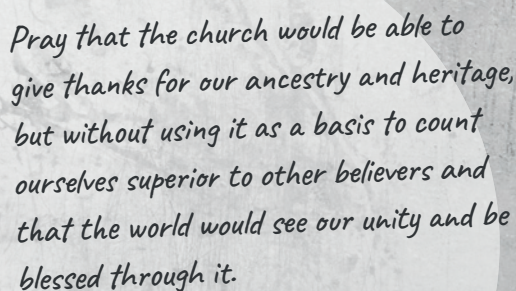 Pray that the church would be able to
give thanks for our ancestry and heritage,
but without using it as a basis to count
ourselves superior to other believers and
that the world would see our unity and be
blessed through it.